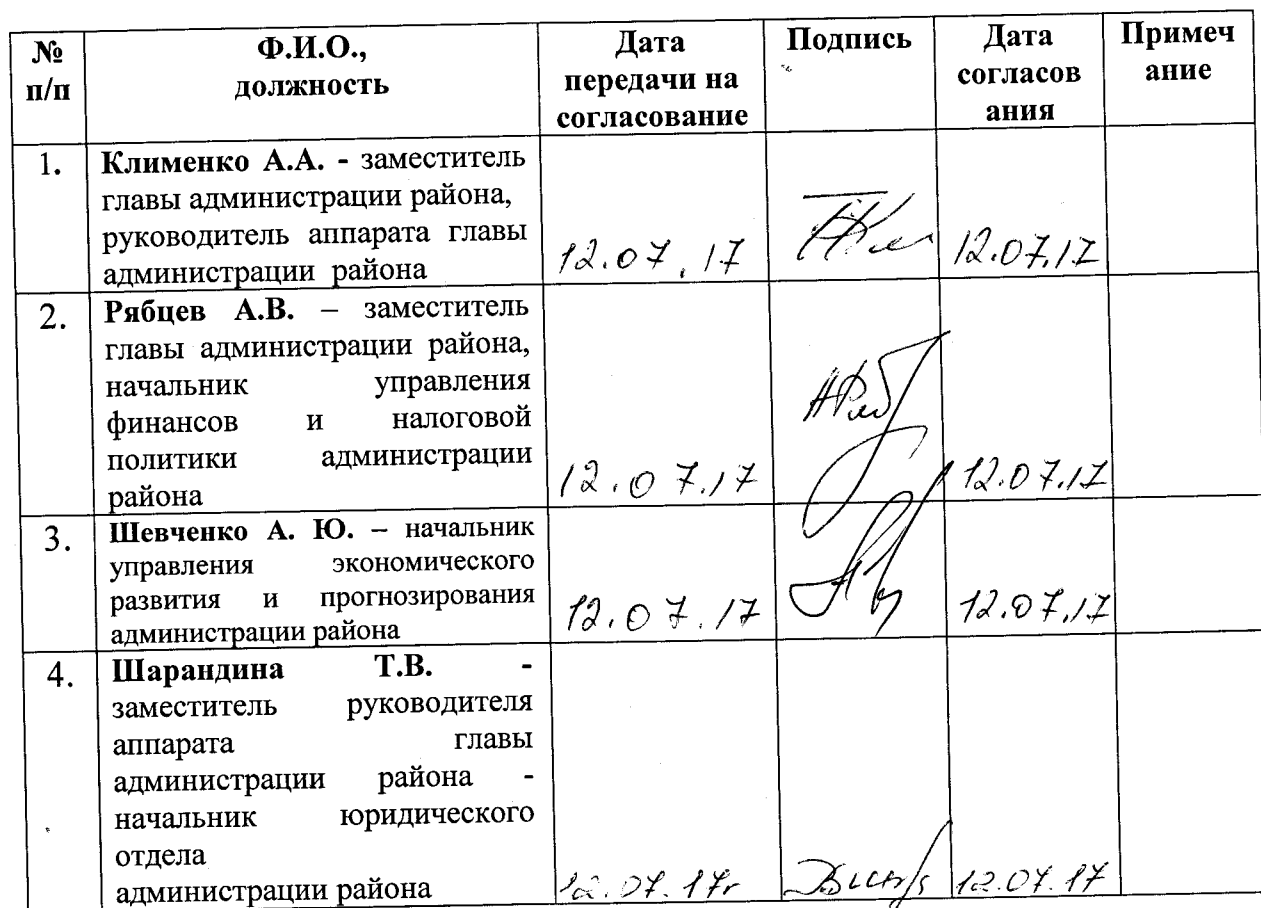 № п/п
Ф.И.О.,
должность
Дата
передачи на
согласование
Подпись
Дата
согласов
ания
Примеч
ание
1.
Клименко А.А. - заместитель
главы администрации района,
руководитель аппарата главы
администрации района
12.07.17
12.07.17
2.
Рябцев А.В. – заместитель
главы администрации района,
начальник управления
финансов и налоговой
политики администрации
района
12.07.17
12.07.17
3.
Шевченко А. Ю. – начальник
управления экономического
развития и прогнозирования
администрации района
12.07.17
12.07.17
4.
Шарандина Т.В. -
заместитель руководителя
аппарата главы
администрации района -
начальник юридического
отдела
администрации района
12.07.17г
12.07.17